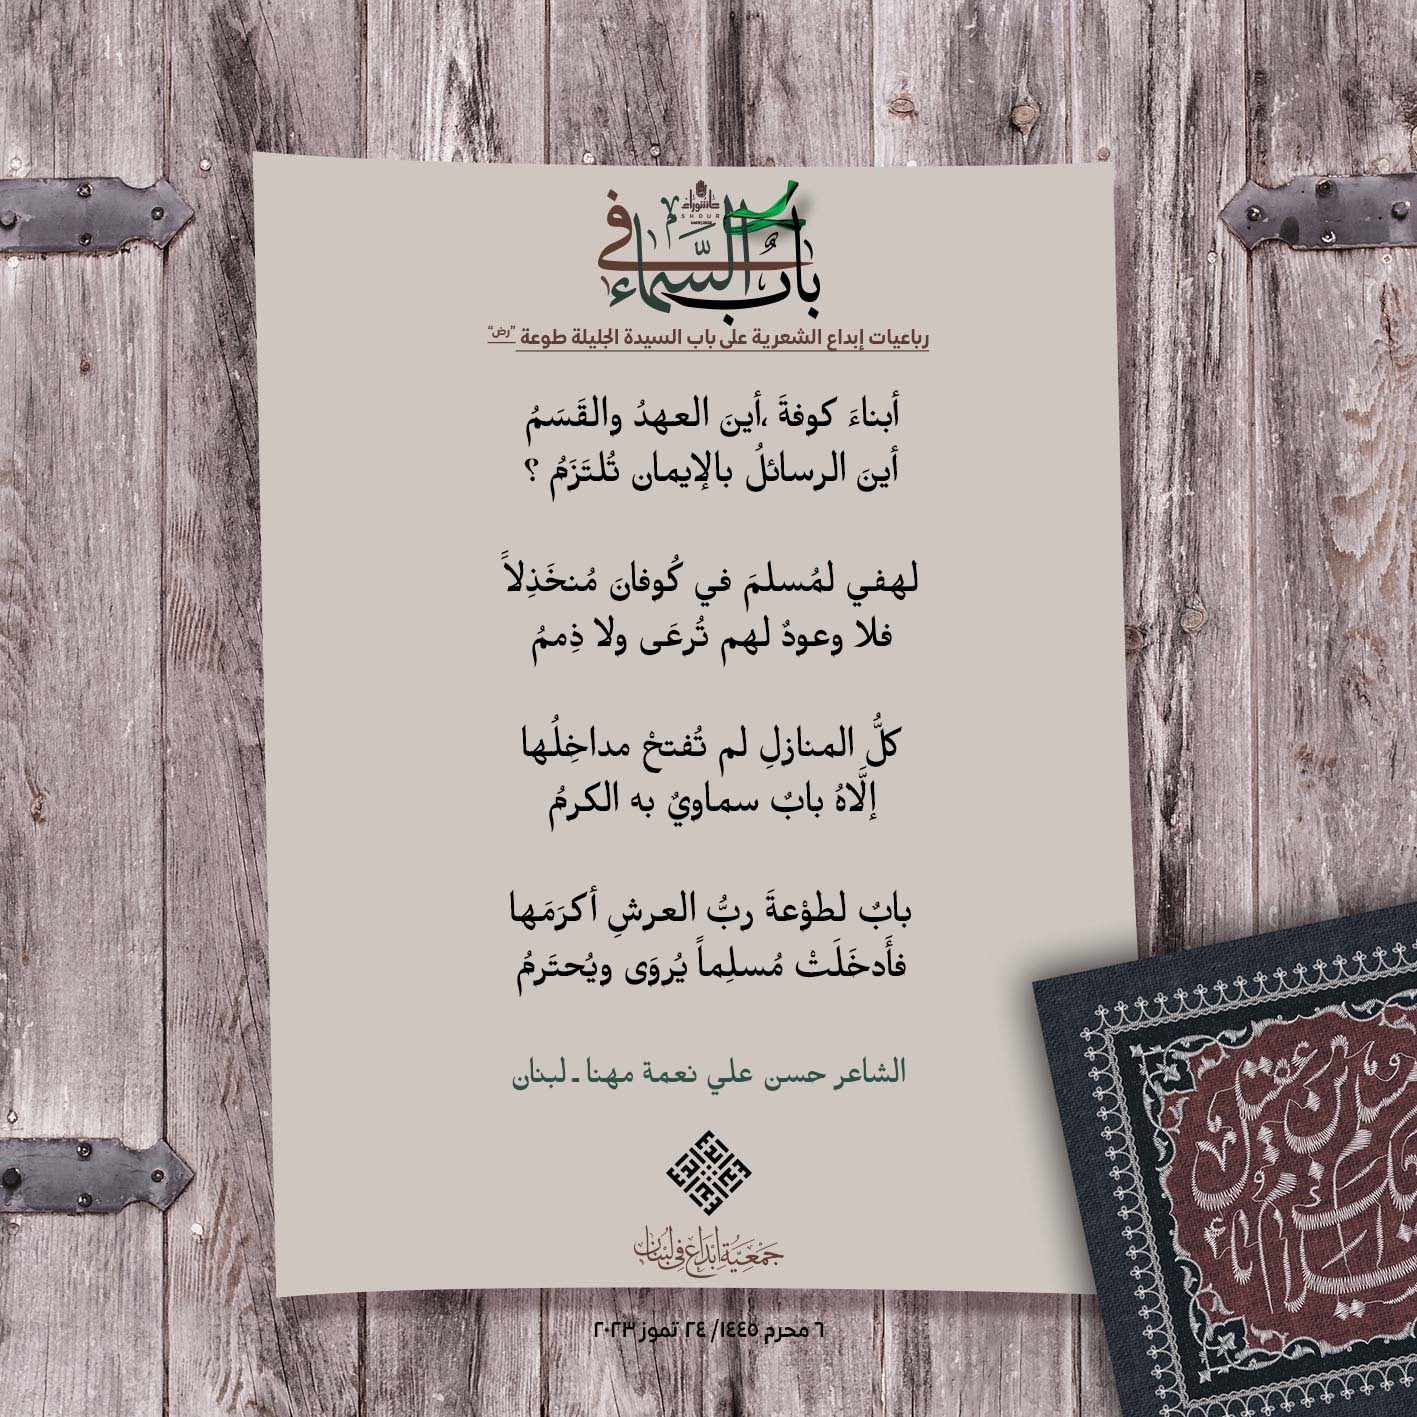 باب السَّماء في
عاشوراء
رباعيات إبداع الشعرية على باب السيدة الجليلة طوعة "رض"
أبناءَ كوفةَ ،أينَ العهدُ والقَسَمُ
أينَ الرسائلُ بالإيمان تُلتَزَمُ ؟
لهفي لمُسلمَ في كُوفانَ مُنخَذِلاً
فلا وعودٌ لهم تُرعَى ولا ذِممُ
كلُّ المنازلِ لم تُفتحْ مداخِلُها
إلَّاهُ بابٌ سماويٌ به الكرمُ
بابٌ لطوْعةَ ربُّ العرشِ أكرَمَها
فأَدخَلَتْ مُسلِماً يُروَى ويُحتَرمُ
الشاعر حسن علي نعمة مهنا ـ لبنان
جمعيّة إبداع في لبنان
٦ محرم ١٤٤٥/ ٢٤ تموز ٢٠٢٣